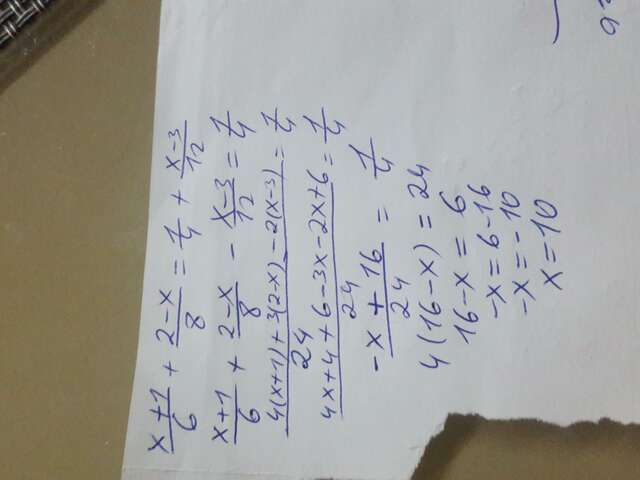 x+1/6 + 2-x/8 = 1/4 + x-3/12
x+1/6 + 2-x/8 - x-3/12 = 1/4
4(x+1)+3(2-x)-2(x-3)/24 = 1/4
4x+4+6-3x-2x+6/24 = 1/4
-x+16/24 = 1/4
4(16-x) = 24
16-x = 6
-x = 6-16
-x = -10
x = 10